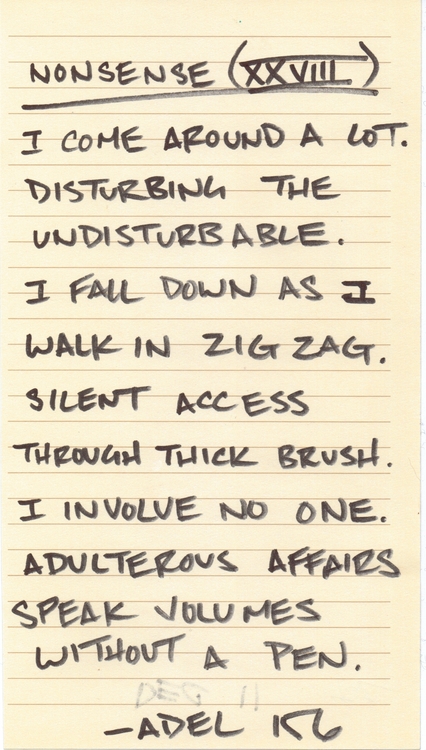 NONSENSE (XXVIII)
I COME AROUND A LOT.
DISTURBING THE
UNDISTURBABLE.
I FALL DOWN AS I
WALK IN ZIG ZAG.
SILENT ACCESS
THROUGH THICK BRUSH.
I INVOLVE NO ONE.
ADULTEROUS AFFAIRS
SPEAK VOLUMES
WITHOUT A PEN.
—ADEL